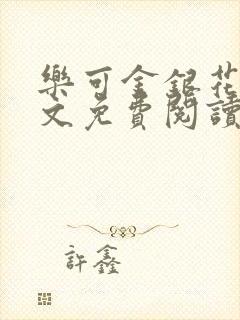 樂可金銀花
文免費閱讀
許鑫